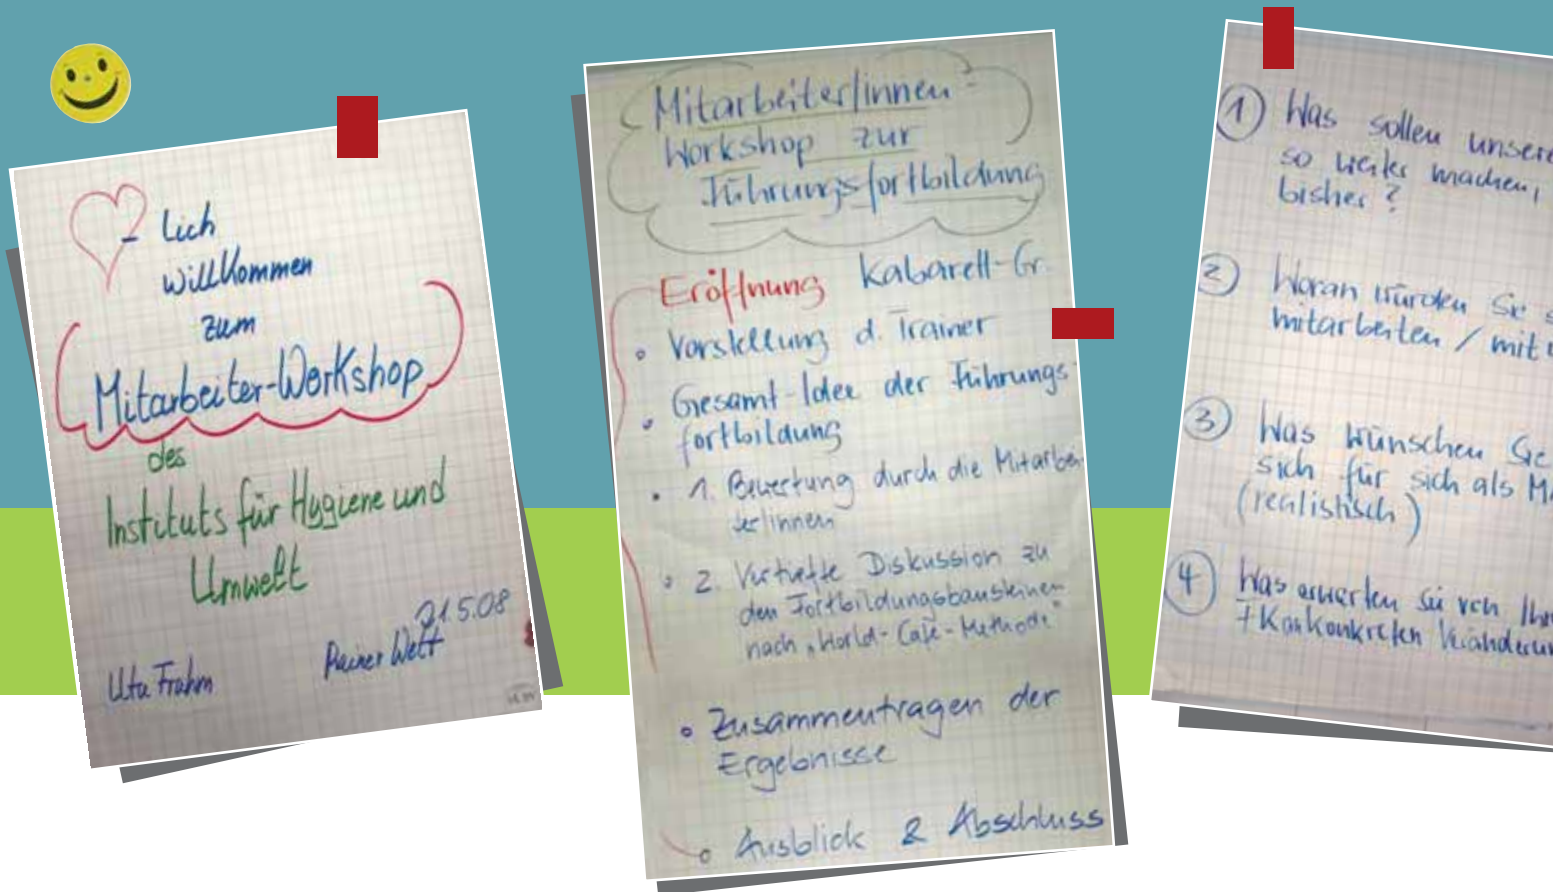 - lich
willkommen
zum
Mitarbeiter-Workshop
des
Instituts für Hygiene und
Umwelt
21.5.08
Uta Frahm
Rainer Welf
Mitarbeiter/innen-
Workshop zur
Führungsfortbildung
Eröffnung Kabarett-Gr.
• Vorstellung d. Trainer
• Gesamt-Idee der Führungs
fortbildung
• 1. Bewertung durch die Mitarbei
ter/innen
• 2. Vertiefte Diskussion zu
den Fortbildungsbausteinen
nach „World-Café-Methode"
• Zusammentragen der
Ergebnisse
• Ausblick & Abschluss
1 Was sollen unsere
so weiter machen,
bisher?
2 Woran würden Sie s
mitarbeiten / mit
3 Was wünschen Sie
sich für sich als M
(realistisch)
4 Was erwarten Sie von Ihr
konkreten Veränderun